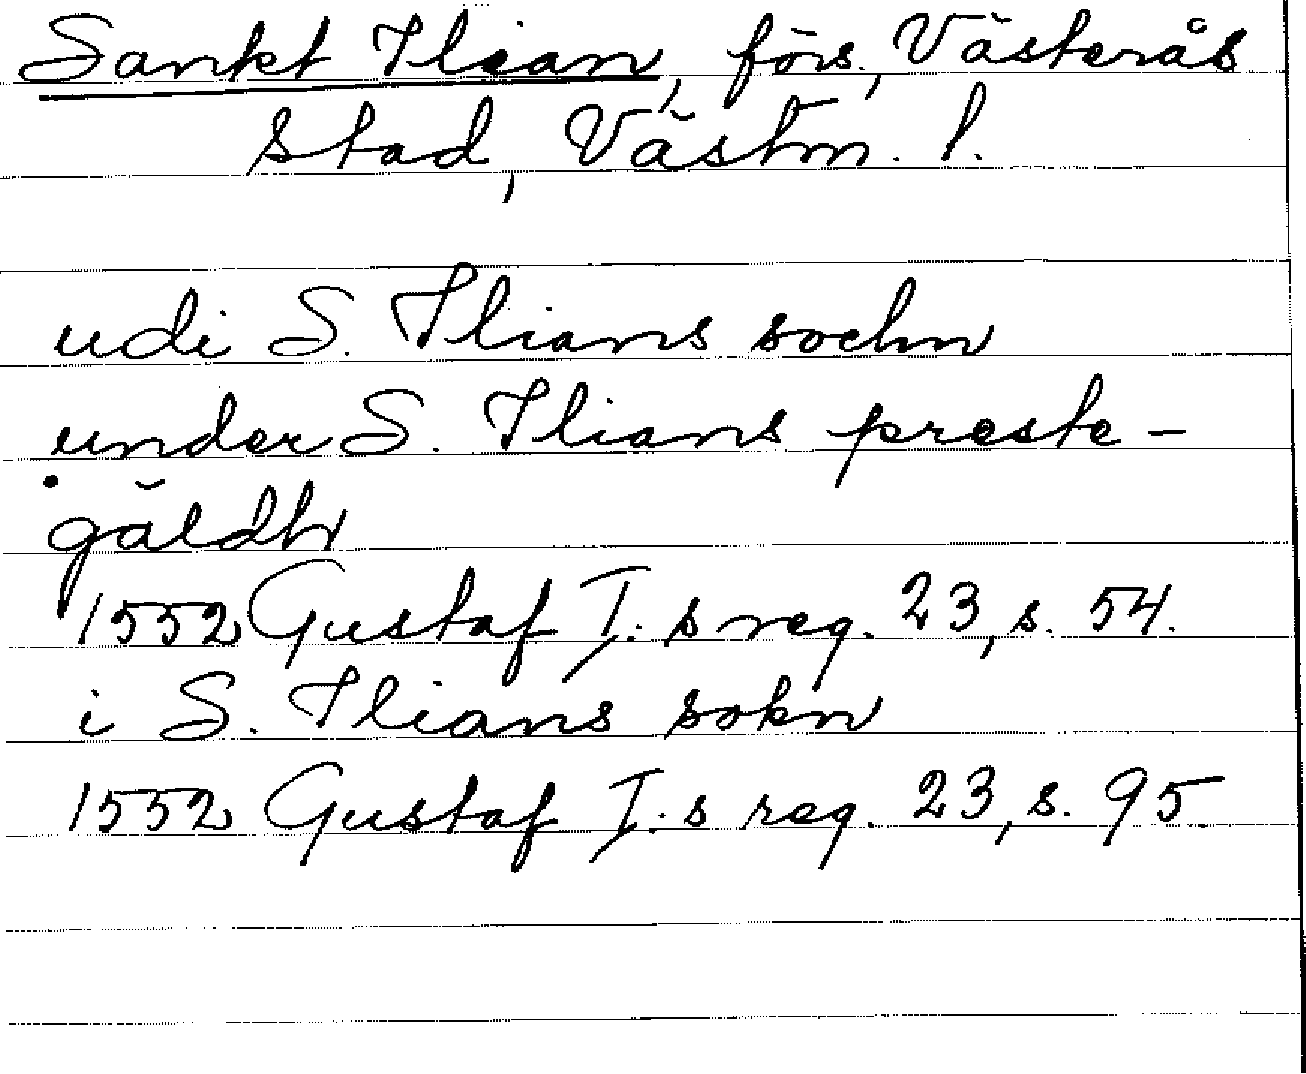 Sankt Ilian, förs., Västerås
stad, Västm. l.
udi S. Ilians sochn
under S. Ilians preste-
gäldh
1552 Gustaf I:s reg. 23, s. 54.
i S. Ilians sokn
1552 Gustaf I:s reg. 23, s. 95